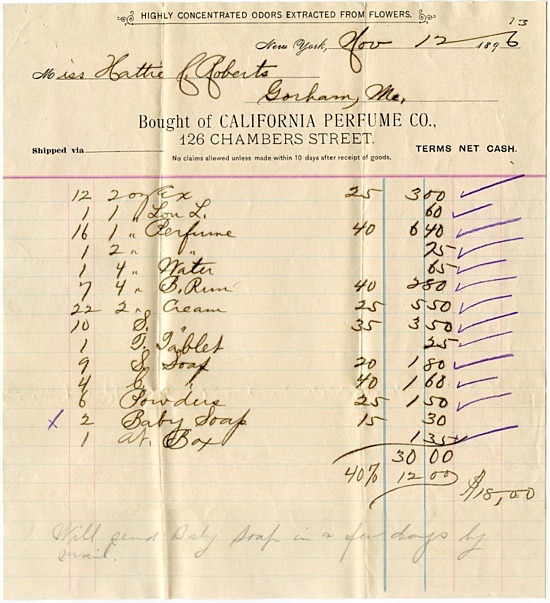 HIGHLY CONCENTRATED ODORS EXTRACTED FROM FLOWERS.
13
New York, Nov 12 1896
Miss Hattie C. Roberts
Gorham, Me.
Bought of CALIFORNIA PERFUME CO.,
126 CHAMBERS STREET.
Shipped via
No claims allowed unless made within 10 days after receipt of goods.
TERMS NET CASH.
12 2 oz Ex 25 3 00
1 1 " Lou L. 60
16 1 " Perfume 40 6 40
1 2 " " 75
1 4 " Water 65
7 4 " B. Rum 40 2 80
22 2 " Cream 25 5 50
10 S. " 35 3 50
1 T. Tablet 25
9 S. Soap 20 1 80
4 " 40 1 60
6 Powders 25 1 50
x 2 Baby Soap 15 30
1 at. Box 1 35
30 00
40% 12 00
$18,00
Will send Baby Soap in a few days by
mail.